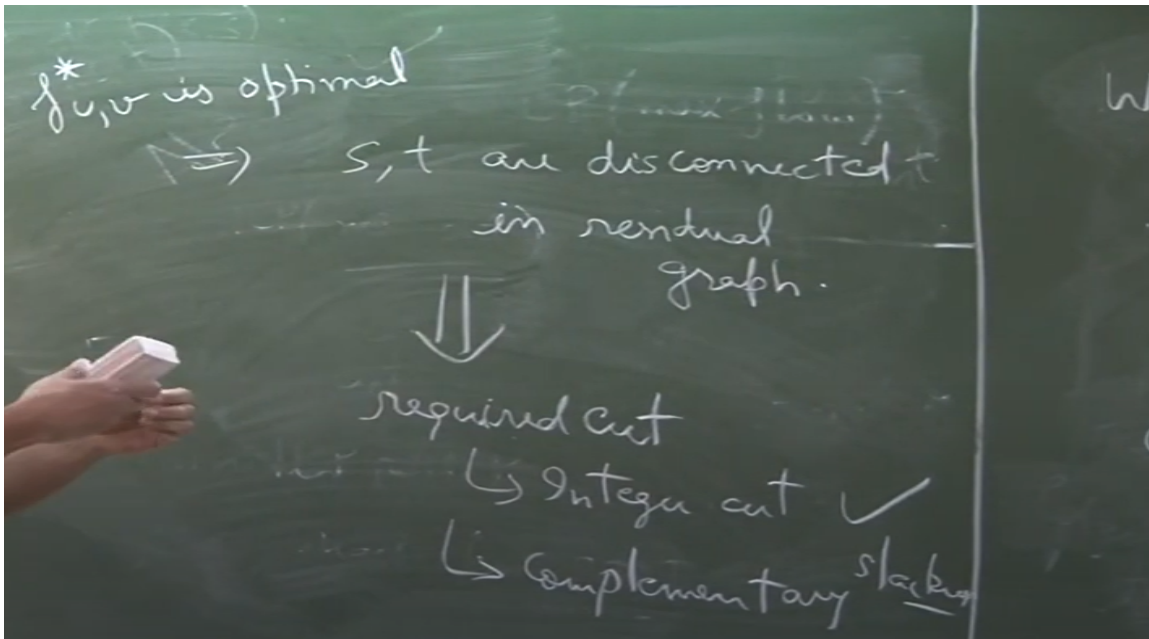 f*u,v is optimal
⇒ s,t are disconnected
in residual
graph.
⇓
required cut
↳ Integer cut ✓
↳ Complementary slackness
W